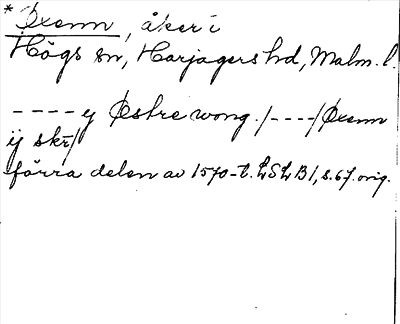 * Øxenn, åker i
Högs sn, Harjagers hd, Malm. l.
---- y Østre wong. /----/ Øxenn
ij skr/
förra delen av 1570-t. LSLB1, s. 67. orig.